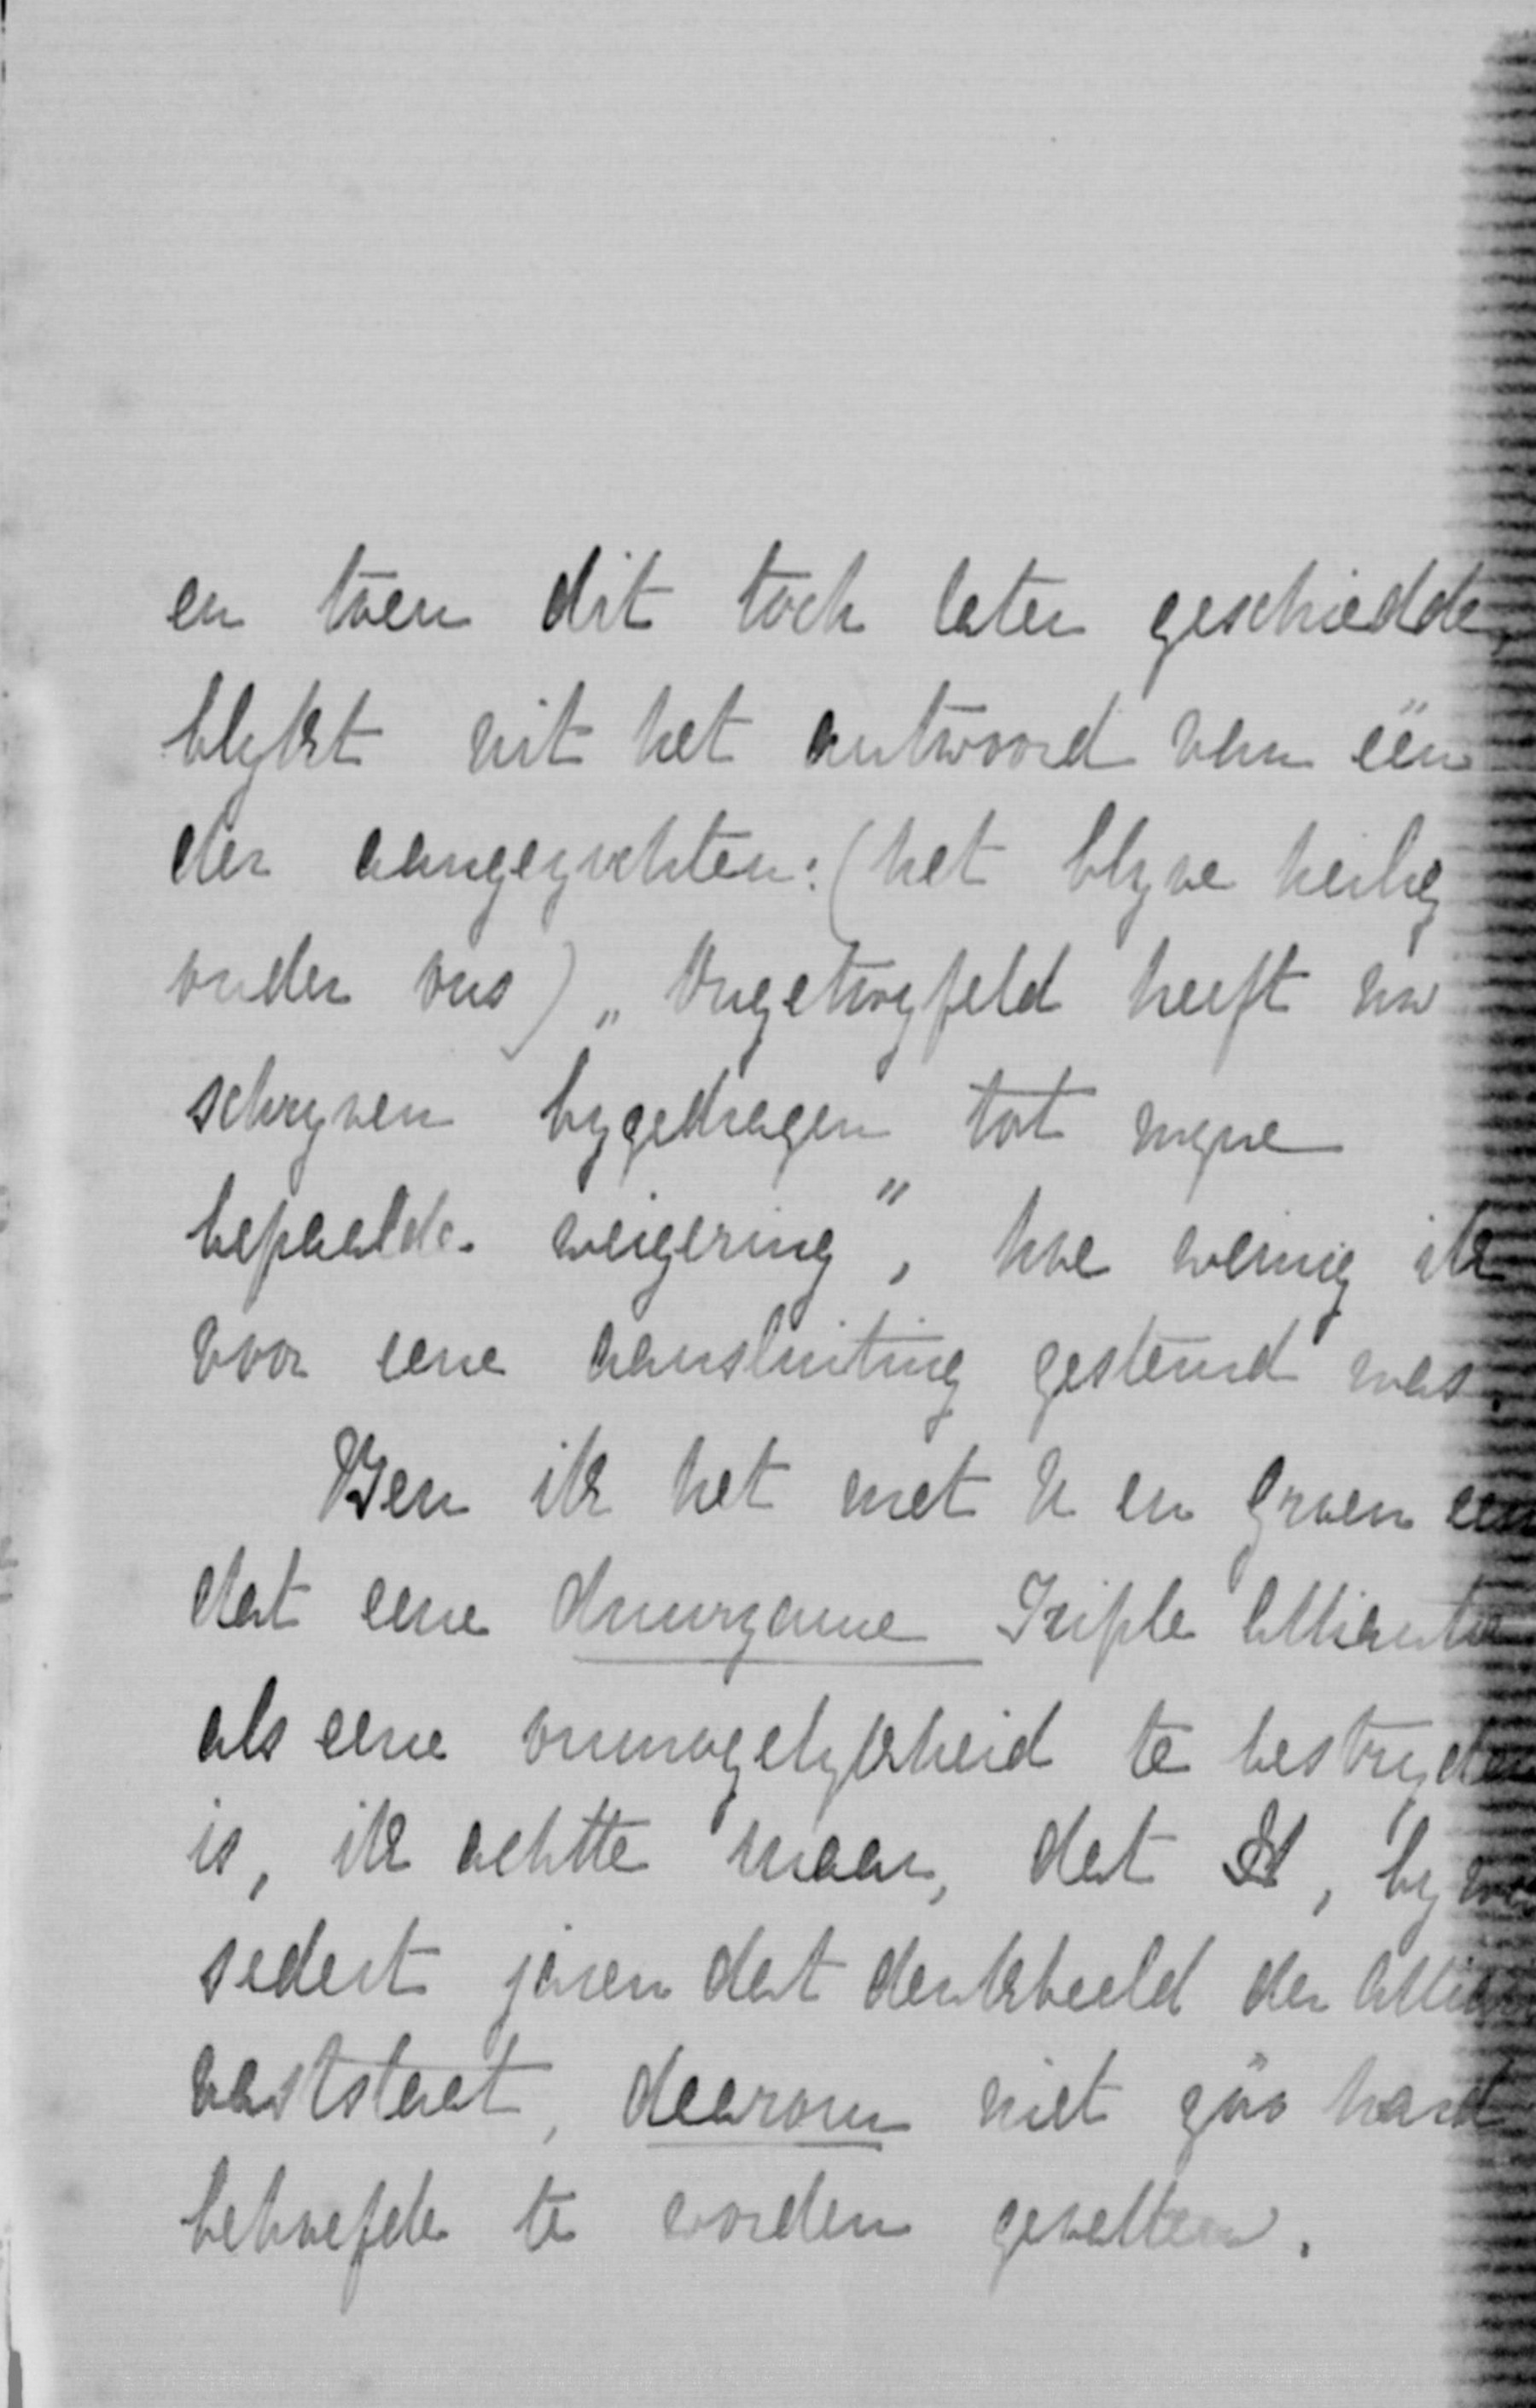 en toen dit toch later geschiedde,
blykt uit het antwoord van één
der aangezochten: (het blyve heilig
onder ons) „Ongetwyfeld heeft uw
schryven bygedragen tot myne
bepaalde weigering", hoe weinig ik
voor eene aansluiting gestemd was.
Ben ik het met U en Groen een
dat eene duurzame Triple Alliantie
als eene onmogelykheid te bestryden
is, ik achtte maar, dat
sedert jaren dat denkbeeld der
vaststaat, daarom niet zóó hard
behoefde te worden gevallen.